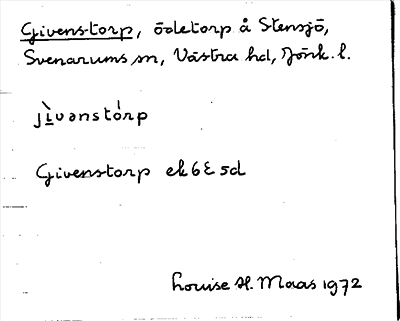 Givenstorp, ödetorp å Stensjö,
Svenarums sn, Västra hd, Jönk. l.
jɩ̀vənstórp
Givenstorp ek 6E 5d
Louise H. Maas 1972